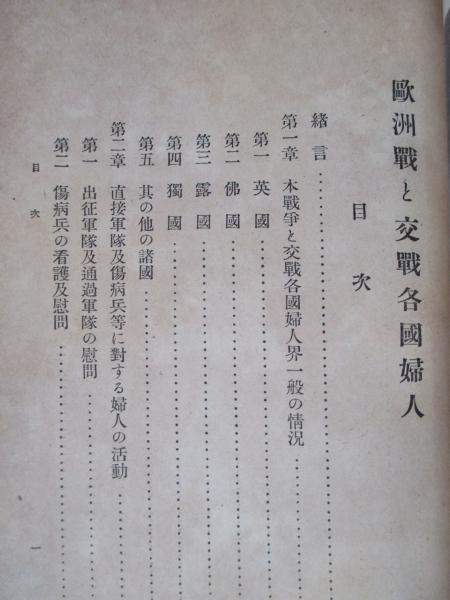 歐洲戰と交戰各國婦人
目次
緖言
第一章 本戰爭と交戰各國婦人界一般の情況
第一 英國
第二 佛國
第三 露國
第四 獨國
第五 其の他の諸國
第二章 直接軍隊及傷病兵等に對する婦人の活動
第一 出征軍隊及通過軍隊の慰問
第二 傷病兵の看護及慰問
目次 一